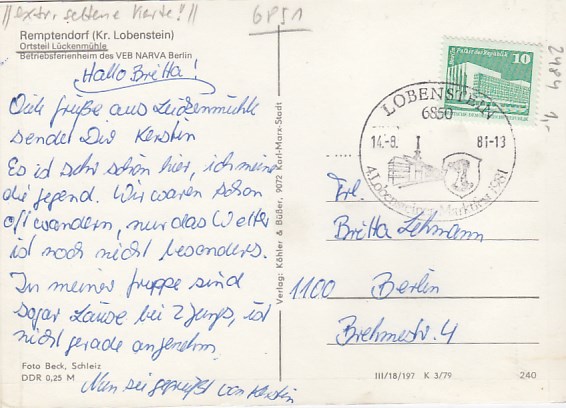 //extr. seltene Karte!//
6851
Remptendorf (Kr. Lobenstein)
Ortsteil Lückenmühle
Betriebsferienheim des VEB NARVA Berlin
Hallo Britta!
Viele Grüße aus Lückenmühle
sendet Dir Kerstin
Es ist sehr schön hier, ich meine
die Gegend. Wir waren schon
oft wandern, nur das Wetter
ist noch nicht besonderes.
In meiner Gruppe sind
sogar Läuse bei 2 Jungs, ist
nicht gerade angenehm.
Nun sei gegrüßt von Kerstin
Foto Beck, Schleiz
DDR 0,25 M
Verlag: Köhler & Büßer, 9072 Karl-Marx-Stadt
Berlin, Palast der Republik
10
2484 1,-
LOBENSTEIN
6850
14.-8. 81-13
4. Lobensteiner Markttag 1981
Frl.
Britta Lehmann
1100 Berlin
Brehmestr. 4
III/18/197 K 3/79 240